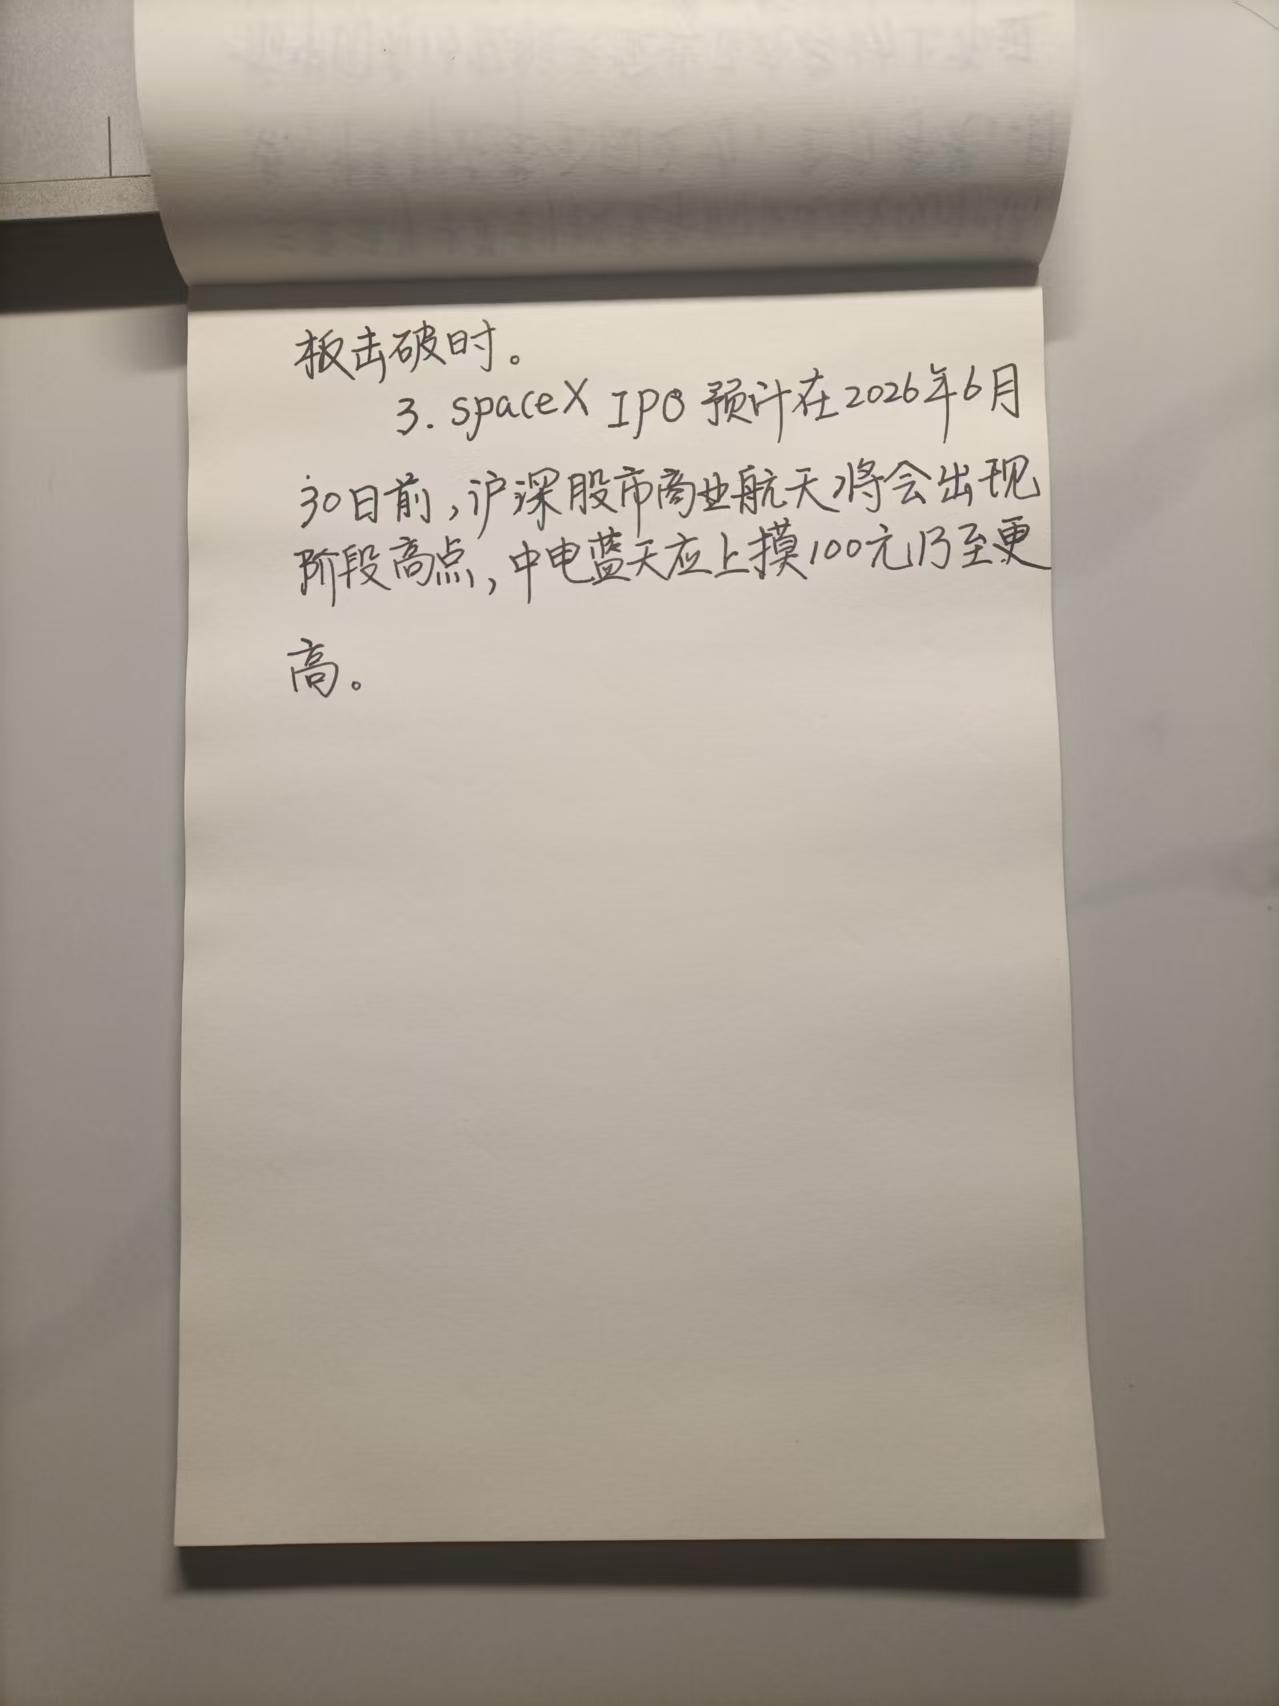 板击破时。
3. spaceX IPO 预计在2026年6月
30日前,沪深股市商业航天将会出现
阶段高点,中电蓝天应上摸100元乃至更
高。